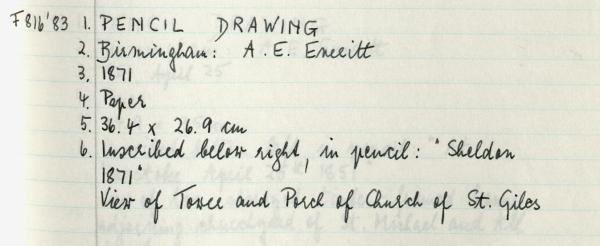 F816'83 1. PENCIL DRAWING
2. Birmingham: A. E. Everitt
3. 1871
4. Paper
5. 36.4 x 26.9 cm
6. Inscribed below right, in pencil: "Sheldon
1871"
View of Tower and Porch of Church of St. Giles